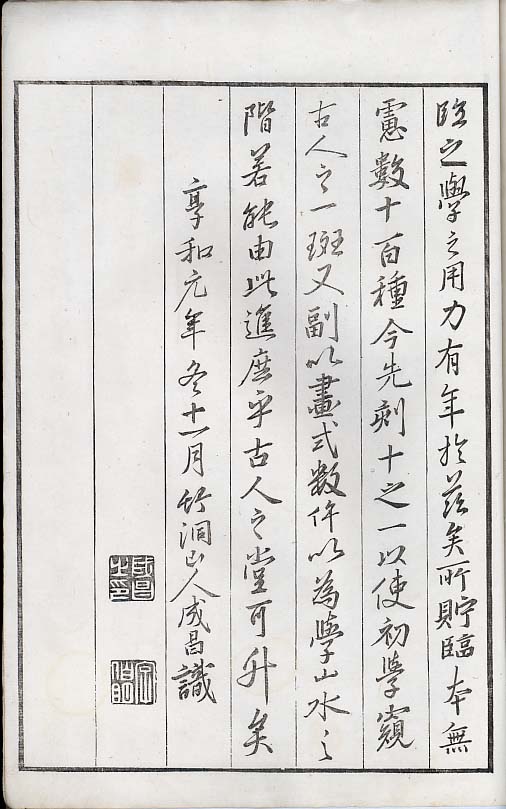 臨之學之用力有年於茲矣所貯臨本無
慮數十百種今先刻十之一以使初學窺
古人之一斑又副以畫式數件以為學山水之
階若能由此進庶乎古人之堂可升矣
享和元年冬十一月竹洞山人成昌識
成昌之印